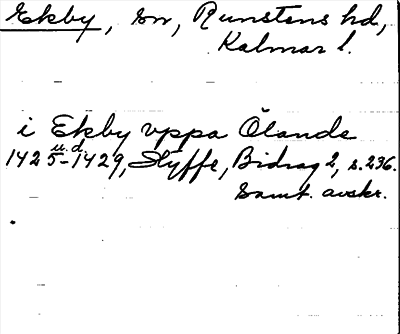 Ekby, sn, Runstens hd,
Kalmar l.
i Ekby vppa Ölande
u.d.
1425-1429, Styffe, Bidrag 2, s. 236.
Samt. avskr.